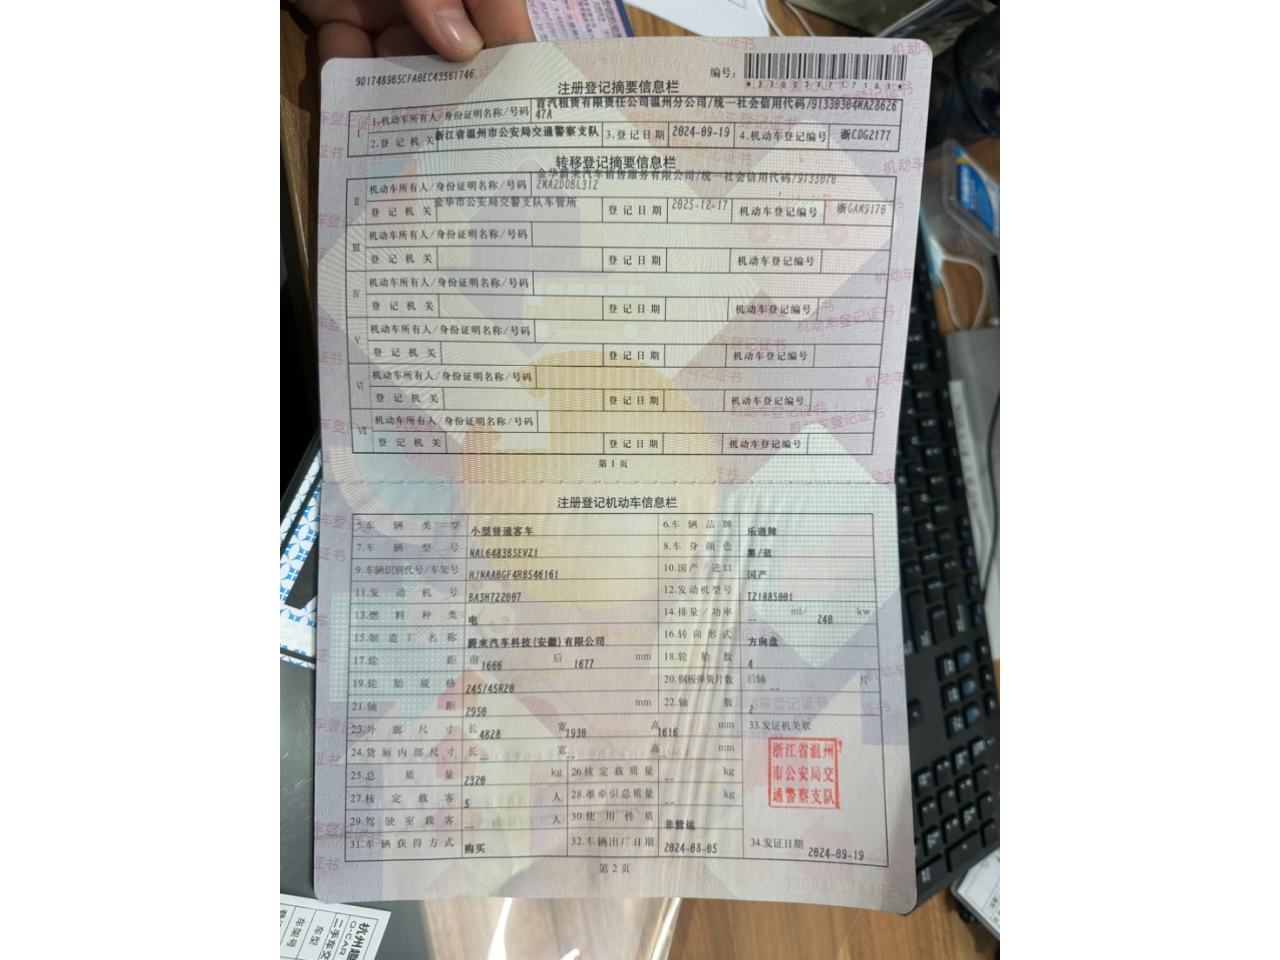 9D17489B5CFA0EC43561746
编号：
注册登记摘要信息栏
I 1.机动车所有人/身份证明名称/号码 首汽租赁有限责任公司温州分公司/统一社会信用代码/91330304MA28626
47A
2.登记机关 浙江省温州市公安局交通警察支队 3.登记日期 2024-09-19 4.机动车登记编号 浙CDG2177
转移登记摘要信息栏
II 机动车所有人/身份证明名称/号码 金华蔚来汽车销售服务有限公司/统一社会信用代码/9133070
2MA2DDBL312
登记机关 金华市公安局交警支队车管所 登记日期 2025-12-17 机动车登记编号 浙GAM9170
III 机动车所有人/身份证明名称/号码
登记机关 登记日期 机动车登记编号
IV 机动车所有人/身份证明名称/号码
登记机关 登记日期 机动车登记编号
V 机动车所有人/身份证明名称/号码
登记机关 登记日期 机动车登记编号
VI 机动车所有人/身份证明名称/号码
登记机关 登记日期 机动车登记编号
VII 机动车所有人/身份证明名称/号码
登记机关 登记日期 机动车登记编号
第1页
注册登记机动车信息栏
5.车辆类型 小型普通客车 6.车辆品牌 乐道牌
7.车辆型号 NAL6483BSEVZ1 8.车身颜色 黑/蓝
9.车辆识别代号/车架号 HJNAABGF4RB546161 10.国产/进口 国产
11.发动机号 BA3H722007 12.发动机型号 TZ188S001
13.燃料种类 电 14.排量/功率 -- ml/ 240 kw
15.制造厂名称 蔚来汽车科技(安徽)有限公司 16.转向形式 方向盘
17.轮距 前 1666 后 1677 mm 18.轮胎数 4
19.轮胎规格 245/45R20 20.钢板弹簧片数 后轴 -- 片
21.轴距 2950 mm 22.轴数 2
23.外廓尺寸 长 4828 宽 1930 高 1616 mm 33.发证机关章
24.货厢内部尺寸 长 -- 宽 -- 高 -- mm
浙江省温州
市公安局交
通警察支队
25.总质量 2320 kg 26.核定载质量 -- kg
27.核定载客 5 人 28.准牵引总质量 -- kg
29.驾驶室载客 -- 人 30.使用性质 非营运
31.车辆获得方式 购买 32.车辆出厂日期 2024-08-05 34.发证日期 2024-09-19
第2页
车架号
车型
二手车交
O-CAR